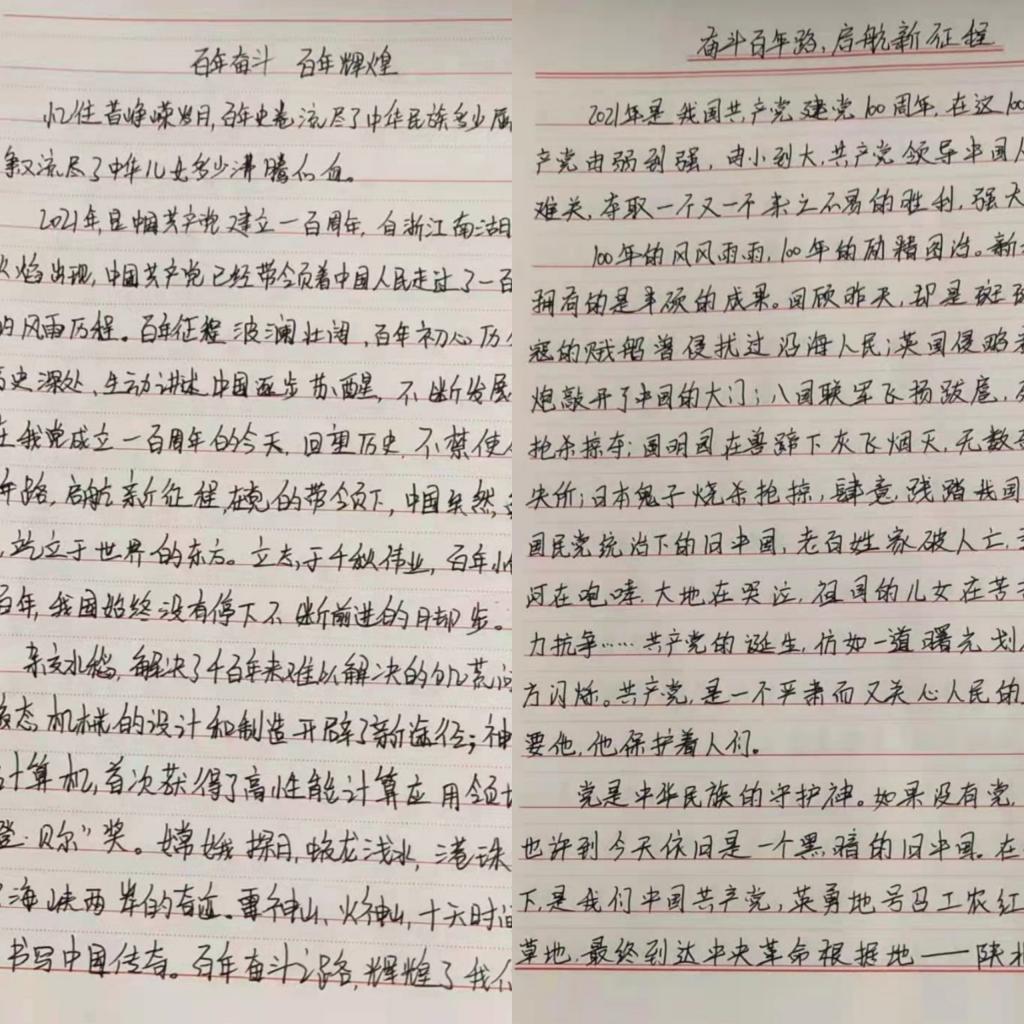 百年奋斗 百年辉煌
忆往昔峥嵘岁月,百年史卷流尽了中华民族多少屈
叙流尽了中华儿女多少沸腾的血。
2021年,是中国共产党建立一百周年,自浙江南湖
火焰出现,中国共产党已经带领着中国人民走过了一百
的风雨历程。百年征程波澜壮阔,百年初心历
历史深处、生动讲述中国逐步苏醒,不断发展
在我党成立一百周年的今天,回望历史,不禁使
年路,启航新征程,在党的带领下,中国虽然
,屹立于世界的东方。立志于千秋伟业,百年
百年,我国始终没有停下不断前进的脚步。
杂交水稻,解决了千百年来难以解决的饥荒问
液态机械的设计和制造开辟了新途径;神
计算机,首次获得了高性能计算应用领
登·贝尔”奖。嫦娥探月,蛟龙浅水,港珠
海峡两岸的奇迹。雷神山、火神山,十天时间
书写中国传奇。百年奋斗之路,辉煌了我们
奋斗百年路,启航新征程
2021年是我国共产党建党100周年,在这100
产党由弱到强,由小到大,共产党领导中国人
难关,夺取一个又一个来之不易的胜利,强大
100年的风风雨雨,100年的励精图治。新
拥有的是丰硕的成果。回顾昨天,却是斑斑
寇的贼船曾侵扰过沿海人民;英国侵略
炮敲开了中国的大门;八国联军飞扬跋扈,
抢杀掠夺;圆明园在兽蹄下灰飞烟灭,无数
失价;日本鬼子烧杀抢掠,肆意践踏我国
国民党统治下的旧中国,老百姓家破人亡,
河在咆哮,大地在哭泣,祖国的儿女在苦
力抗争……共产党的诞生,仿如一道曙光划
方闪烁。共产党,是一个严肃而又关心人民的
要他,他保护着人们。
党是中华民族的守护神。如果没有党,
也许到今天依旧是一个黑暗的旧中国。在
下,是我们中国共产党,英勇地号召工农红
草地,最终到达中央革命根据地——陕北